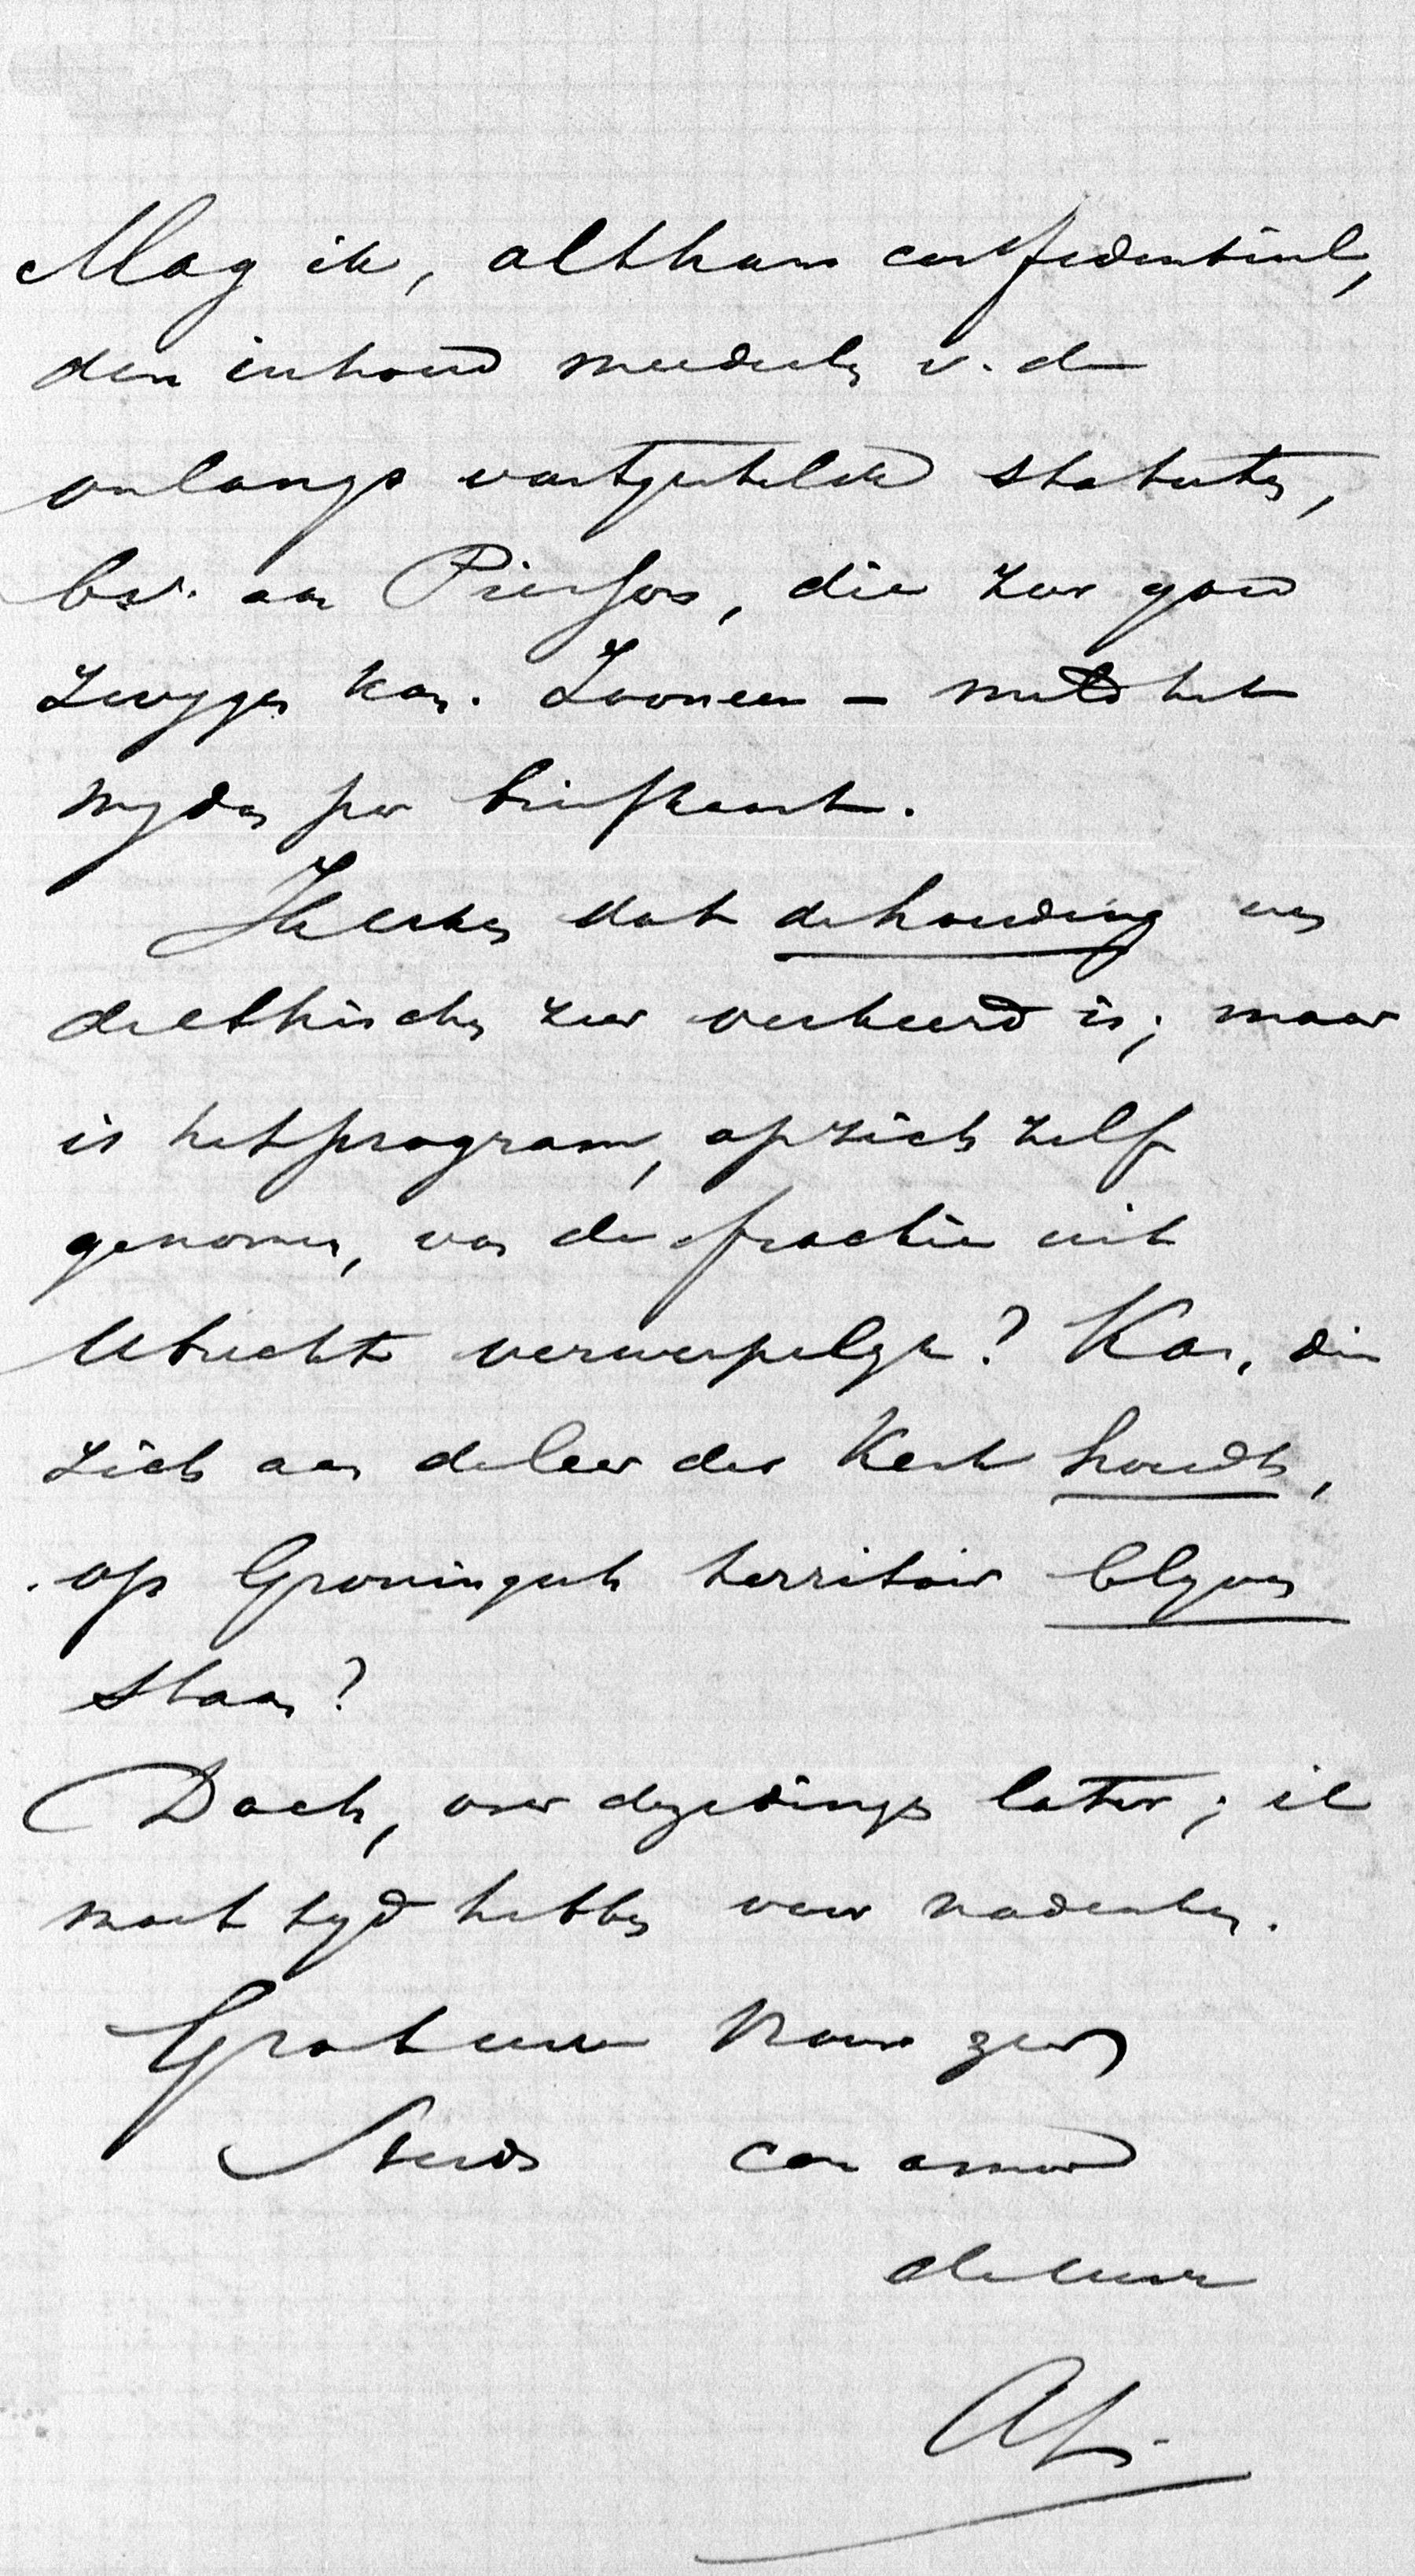 Mag ik, althans confidentieel,
den inhoud meedeelen v. de
onlangs vastgestelde statuten,
bv. aan Pierson, die zeer goed
zwygen kan. Zoo neen – meld het
my dan per briefkaart.
Ik erken dat de houding van
de ethischen zeer verkeerd is; maar
is het program, op zich zelf
genomen, van de fractie uit
Utrecht verwerpelyk? Kan, die
zich aan de leer der Kerk houdt,
op Groningsch territoir blyven
staan?
Doch, over deze dingen later; ik
moet tyd hebben voor nadenken.
Groet uwe Vrouw zeer
Steeds con amore
de uwe